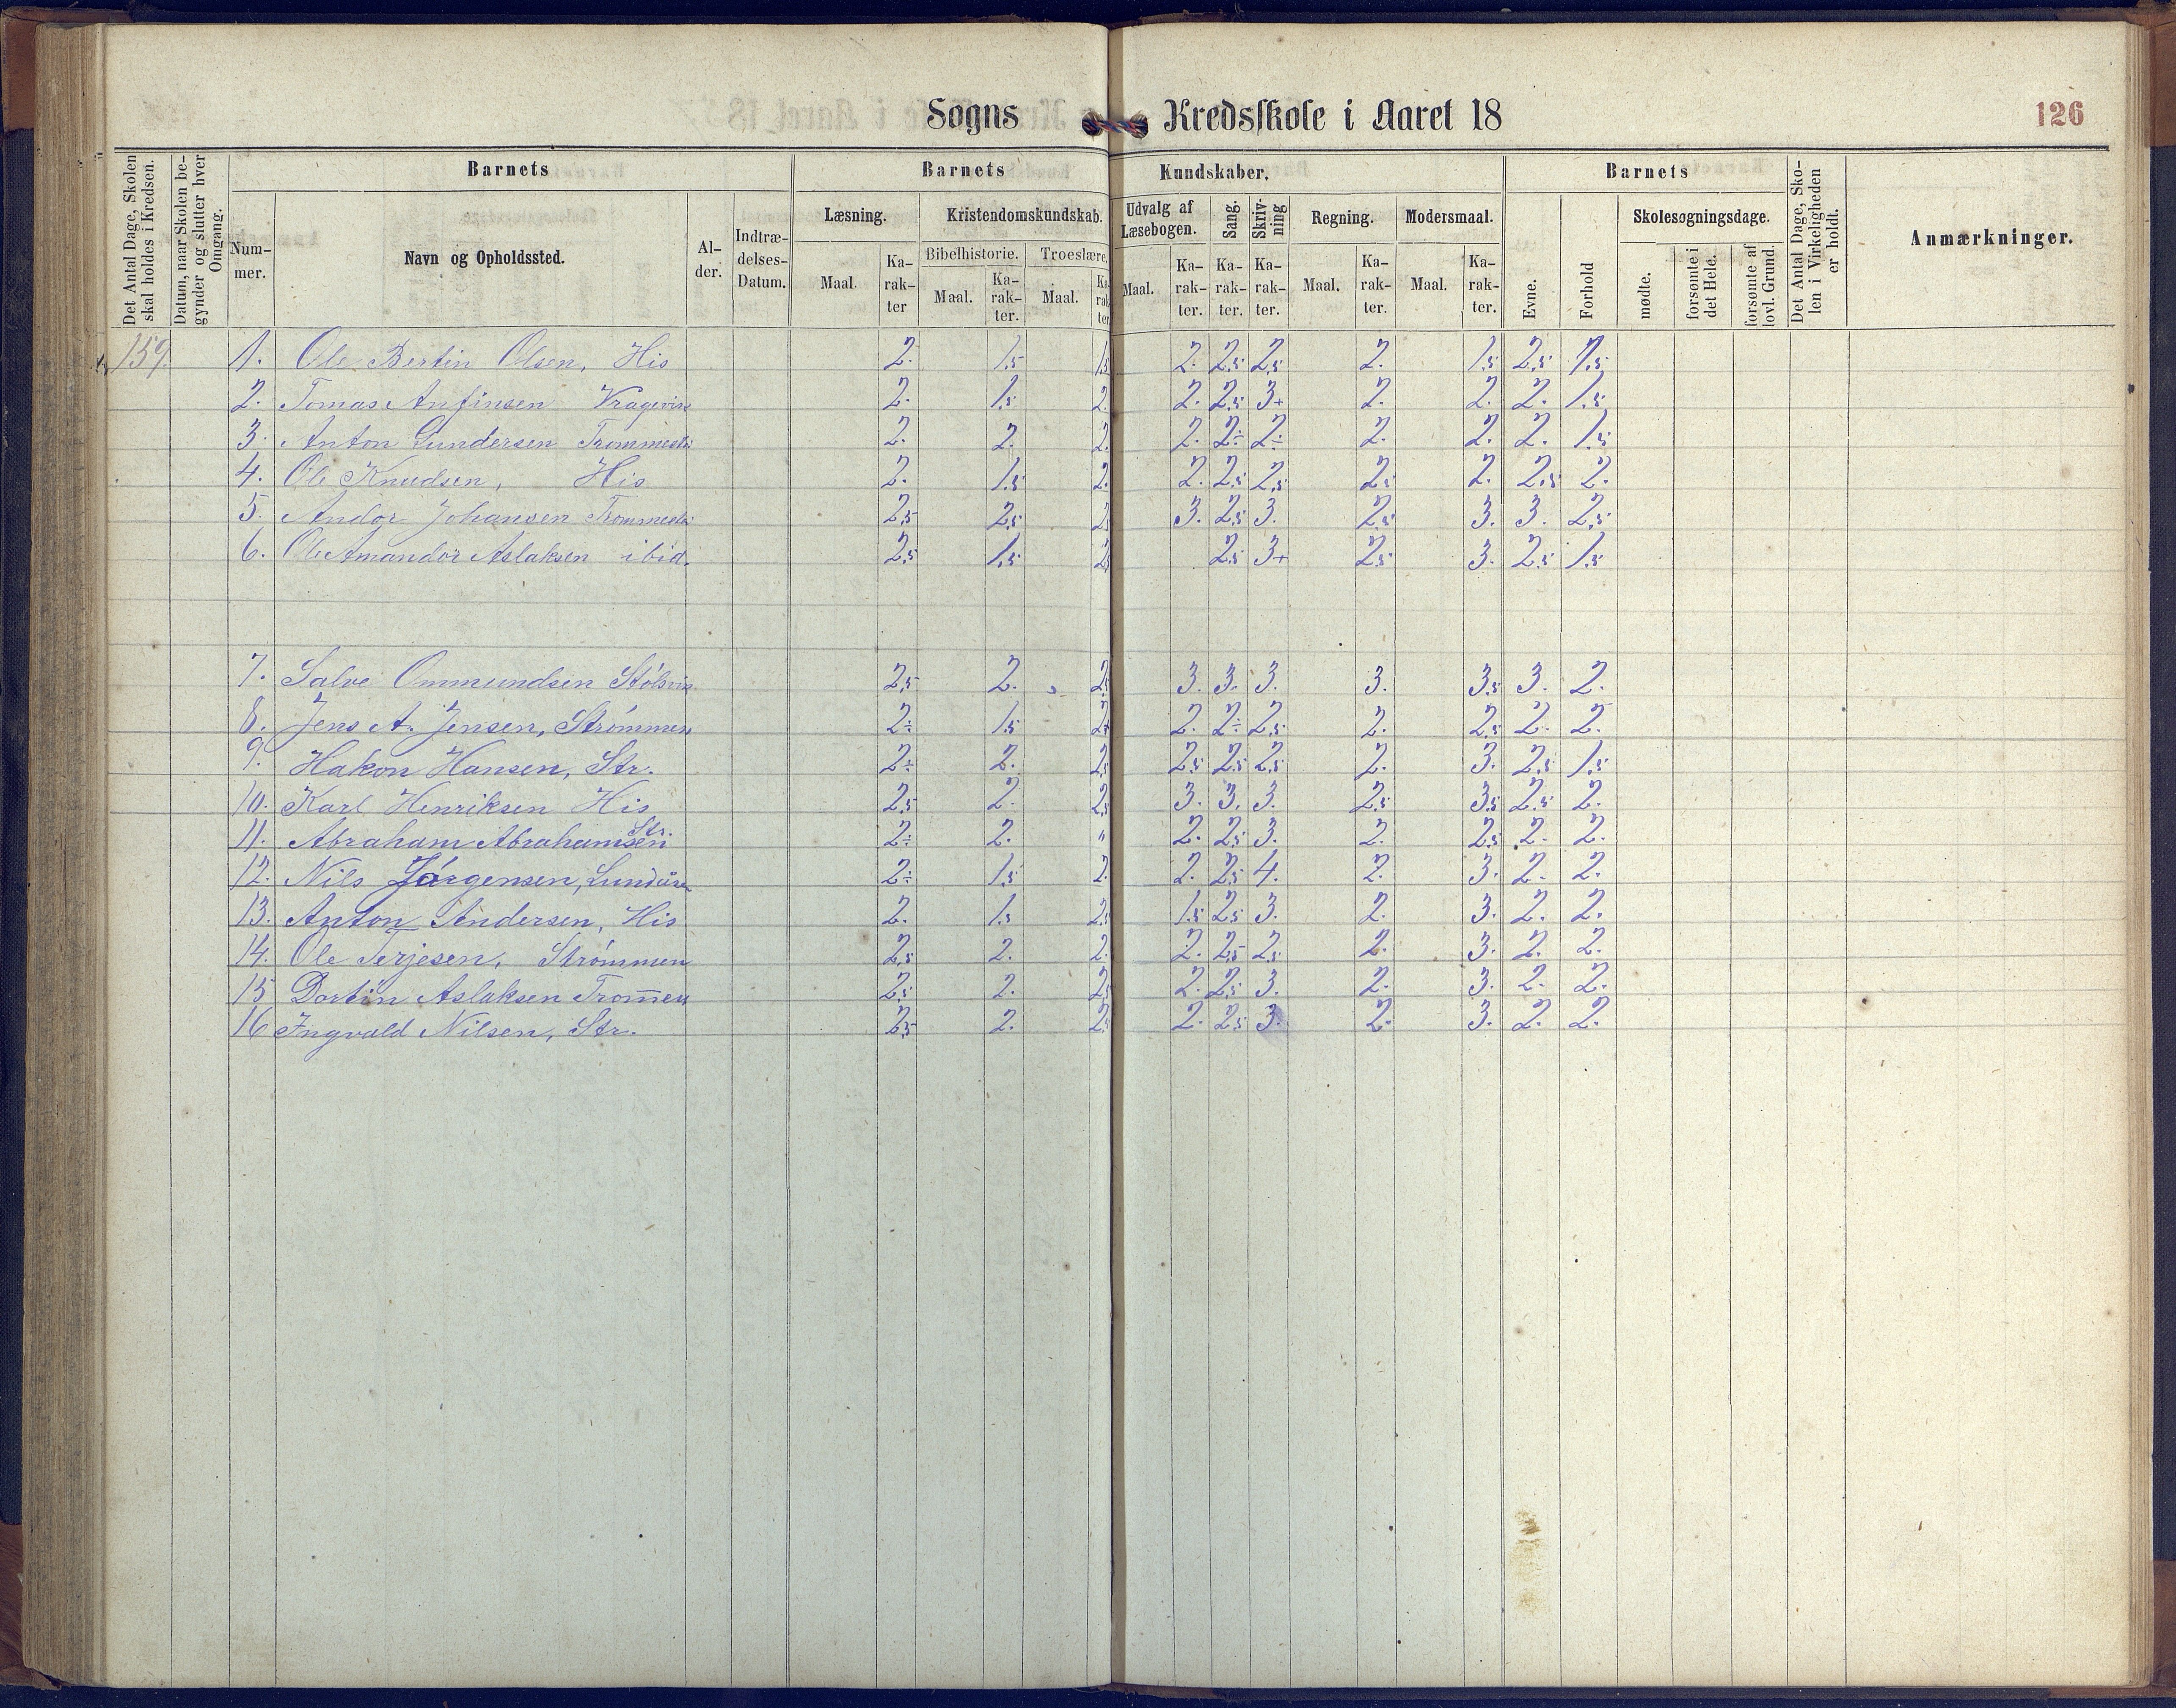 Sogns Kredsskole i Aaret 18
126
Det Antal Dage, Skolen skal holdes i Kredsen.
Datum, naar Skolen begynder og slutter hver Omgang.
Barnets
Nummer.
Navn og Opholdssted.
Alder.
Indtrædelses-Datum.
Barnets Kundskaber.
Læsning.
Maal. Karakter
Kristendomskundskab.
Bibelhistorie. Troeslære.
Maal. Karakter. Maal. Karakter
Udvalg af Læsebogen.
Maal. Karakter.
Sang. Karakter.
Skrivning Karakter.
Regning.
Maal. Karakter.
Modersmaal.
Maal. Karakter.
Barnets
Evne.
Forhold
Skolesøgningsdage.
mødte.
forsømte i det Hele.
forsømte af lovl. Grund.
Det Antal Dage, Skolen i Virkeligheden er holdt.
Anmærkninger.
159. 1. Ole Bertin Olsen, His 2. 1,5 1,5 2. 2,5 2,5 2. 1,5 2,5 1,5
2. Tomas Anfinsen 2. 1,5 2. 2. 2,5 3+ 2. 2. 2. 1,5
3. Anton Gundersen 2. 2. 2. 2. 2÷ 2÷ 2. 2. 2. 1,5
4. Ole Knudsen, His 2. 1,5 2. 2. 2,5 2,5 2,5 2. 2,5 2.
5. Andor Johansen 2,5 2,5 2,5 3. 2,5 3. 2,5 3. 3. 2,5
6. Ole Amandor Aslaksen ibid. 2,5 1,5 2,5 2,5 3+ 2,5 3. 2,5 1,5
7. Salve Ommundsen 2,5 2. 2,5 3. 3. 3. 3. 3,5 3. 2.
8. Jens A. Jensen, Strømmen 2÷ 1,5 2+ 2. 2÷ 2,5 2. 2,5 2. 2.
9. Hakon Hansen, Str. 2÷ 2. 2,5 2,5 2,5 2,5 2. 3. 2,5 1,5
10. Karl Henriksen His 2,5 2. 2,5 3. 3. 3. 2,5 3,5 2,5 2.
11. Abraham Abrahamsen Str. 2÷ 2. " 2. 2,5 3. 2. 2,5 2. 2.
12. Nils Jørgensen, 2÷ 1,5 2. 2. 2,5 4. 2. 3. 2. 2.
13. Anton Andersen, His 2. 1,5 2,5 1,5 2,5 3. 2. 3. 2. 2.
14. Ole Terjesen, Strømmen 2,5 2. 2. 2. 2,5 2,5 2. 3. 2. 2.
15 Dortin Aslaksen 2,5 2. 2,5 2. 2,5 3. 2. 3. 2. 2.
16 Ingvald Nilsen, Str. 2,5 2. 2,5 2. 2,5 3. 2. 3. 2. 2.